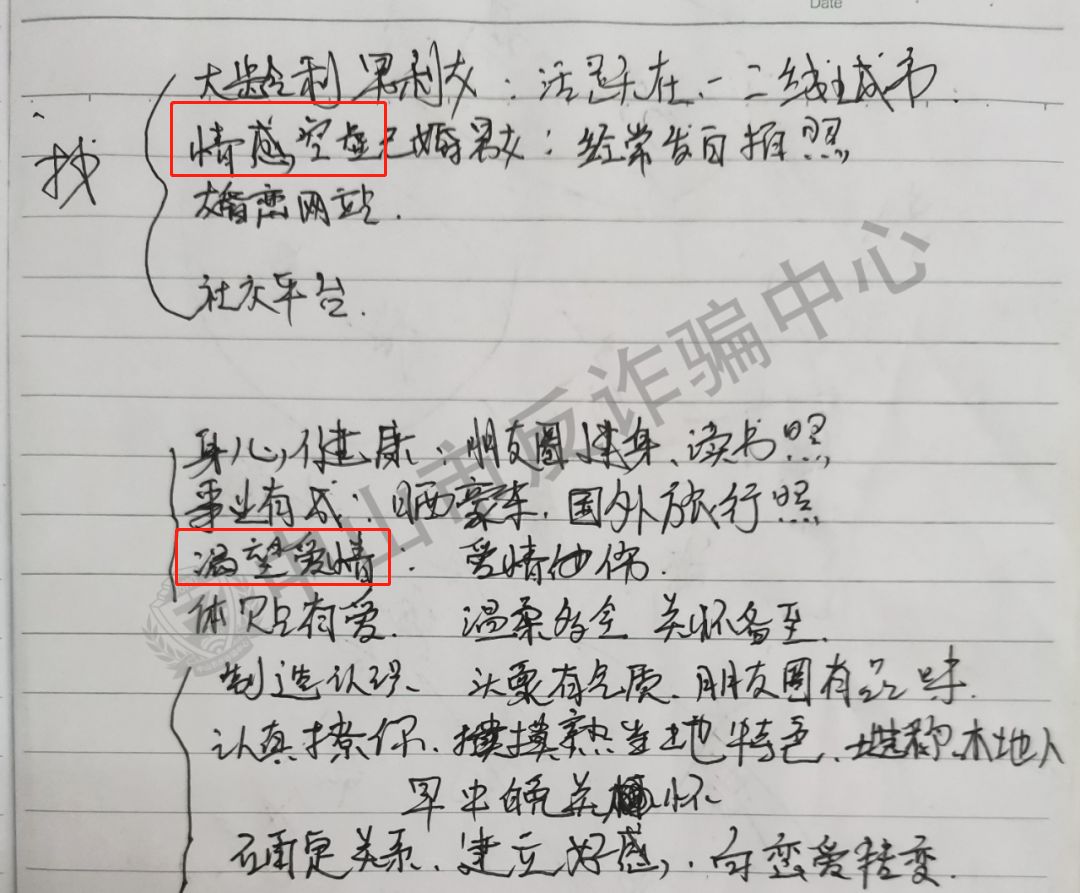 Date
找
大龄剩男剩女：活跃在一二线城市.
情感空虚已婚男女：经常发自拍照
婚恋网站.
社交平台.
中山市反诈骗中心
身心健康：朋友圈健身、读书照
事业有成：晒豪车.国外旅行照
渴望爱情：爱情
体贴有爱. 温柔多金 关怀备至.
制造认识、头像有气质.朋友圈有品味.
认真撩你.摸熟当地特色.谎称本地人
早中晚关怀
确定关系.建立好感,.向恋爱转变.